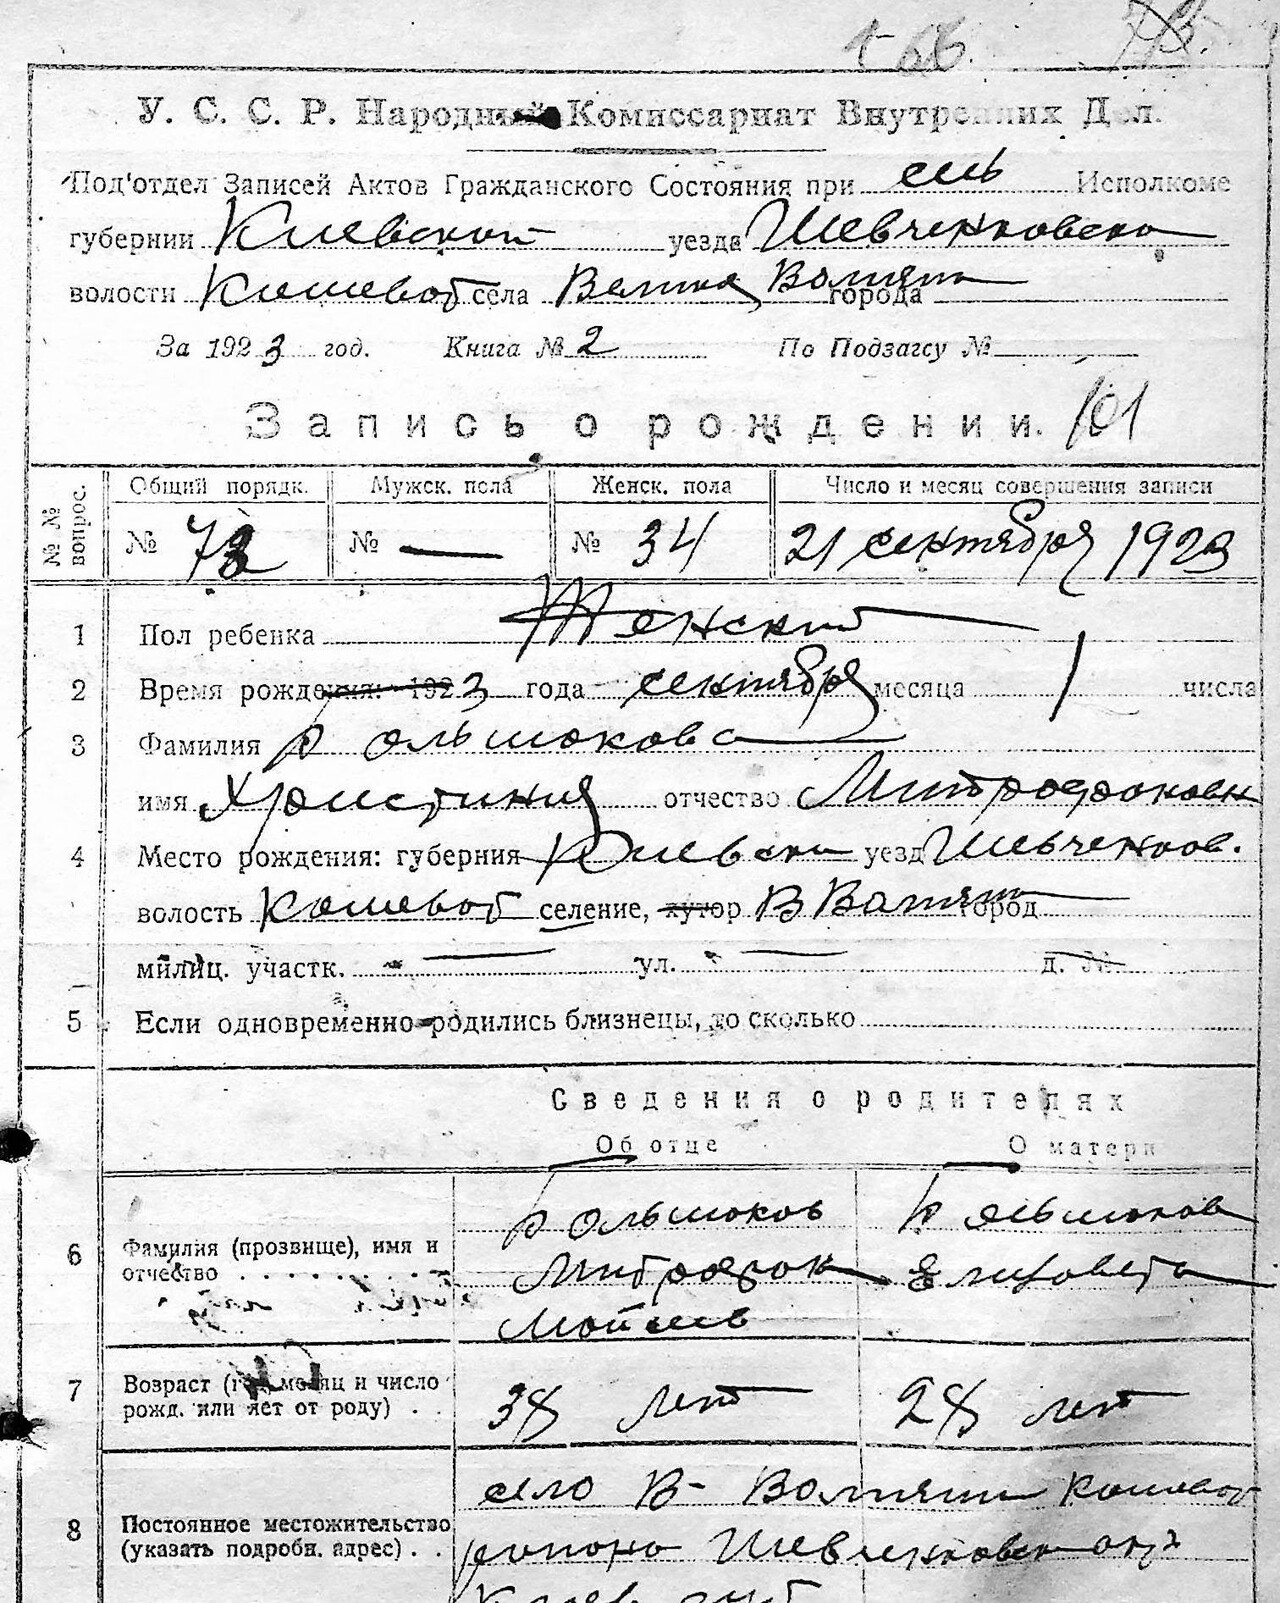 У. С. С. Р. Народный Комиссариат Внутренних Дел.
Под'отдел Записей Актов Гражданского Состояния при сель Исполкоме
губернии Киевской уезда Шевченковско
волости Кошеват села Велика Вотяни города
За 1923 год. Книга № 2 По Подзагсу №
Запись о рождении. 101
№ № вопрос.
Общий порядк. Мужск. пола Женск. пола Число и месяц совершения записи
№ 72 № — № 34 21 сентября 1923
1 Пол ребенка Женский
2 Время рождения: 1923 года сентября месяца 1 числа
3 Фамилия Большокова
имя Христиния отчество Митрофановн
4 Место рождения: губерния Киевски уезд Шевченков.
волость Кошеват селение, хутор В Вотяни город
милиц. участк. — ул. — д. №
5 Если одновременно родились близнецы, то сколько
Сведения о родителях
Об отце О матери
6 Фамилия (прозвище), имя и отчество
Большоков Большокова
Митрофан Елизовета
Мойсеев
7 Возраст (год, месяц и число рожд. или лет от роду)
38 лет 28 лет
8 Постоянное местожительство (указать подробн. адрес)
село В- Вотяни Кошеват
района Шевченковск окр
Киев губ